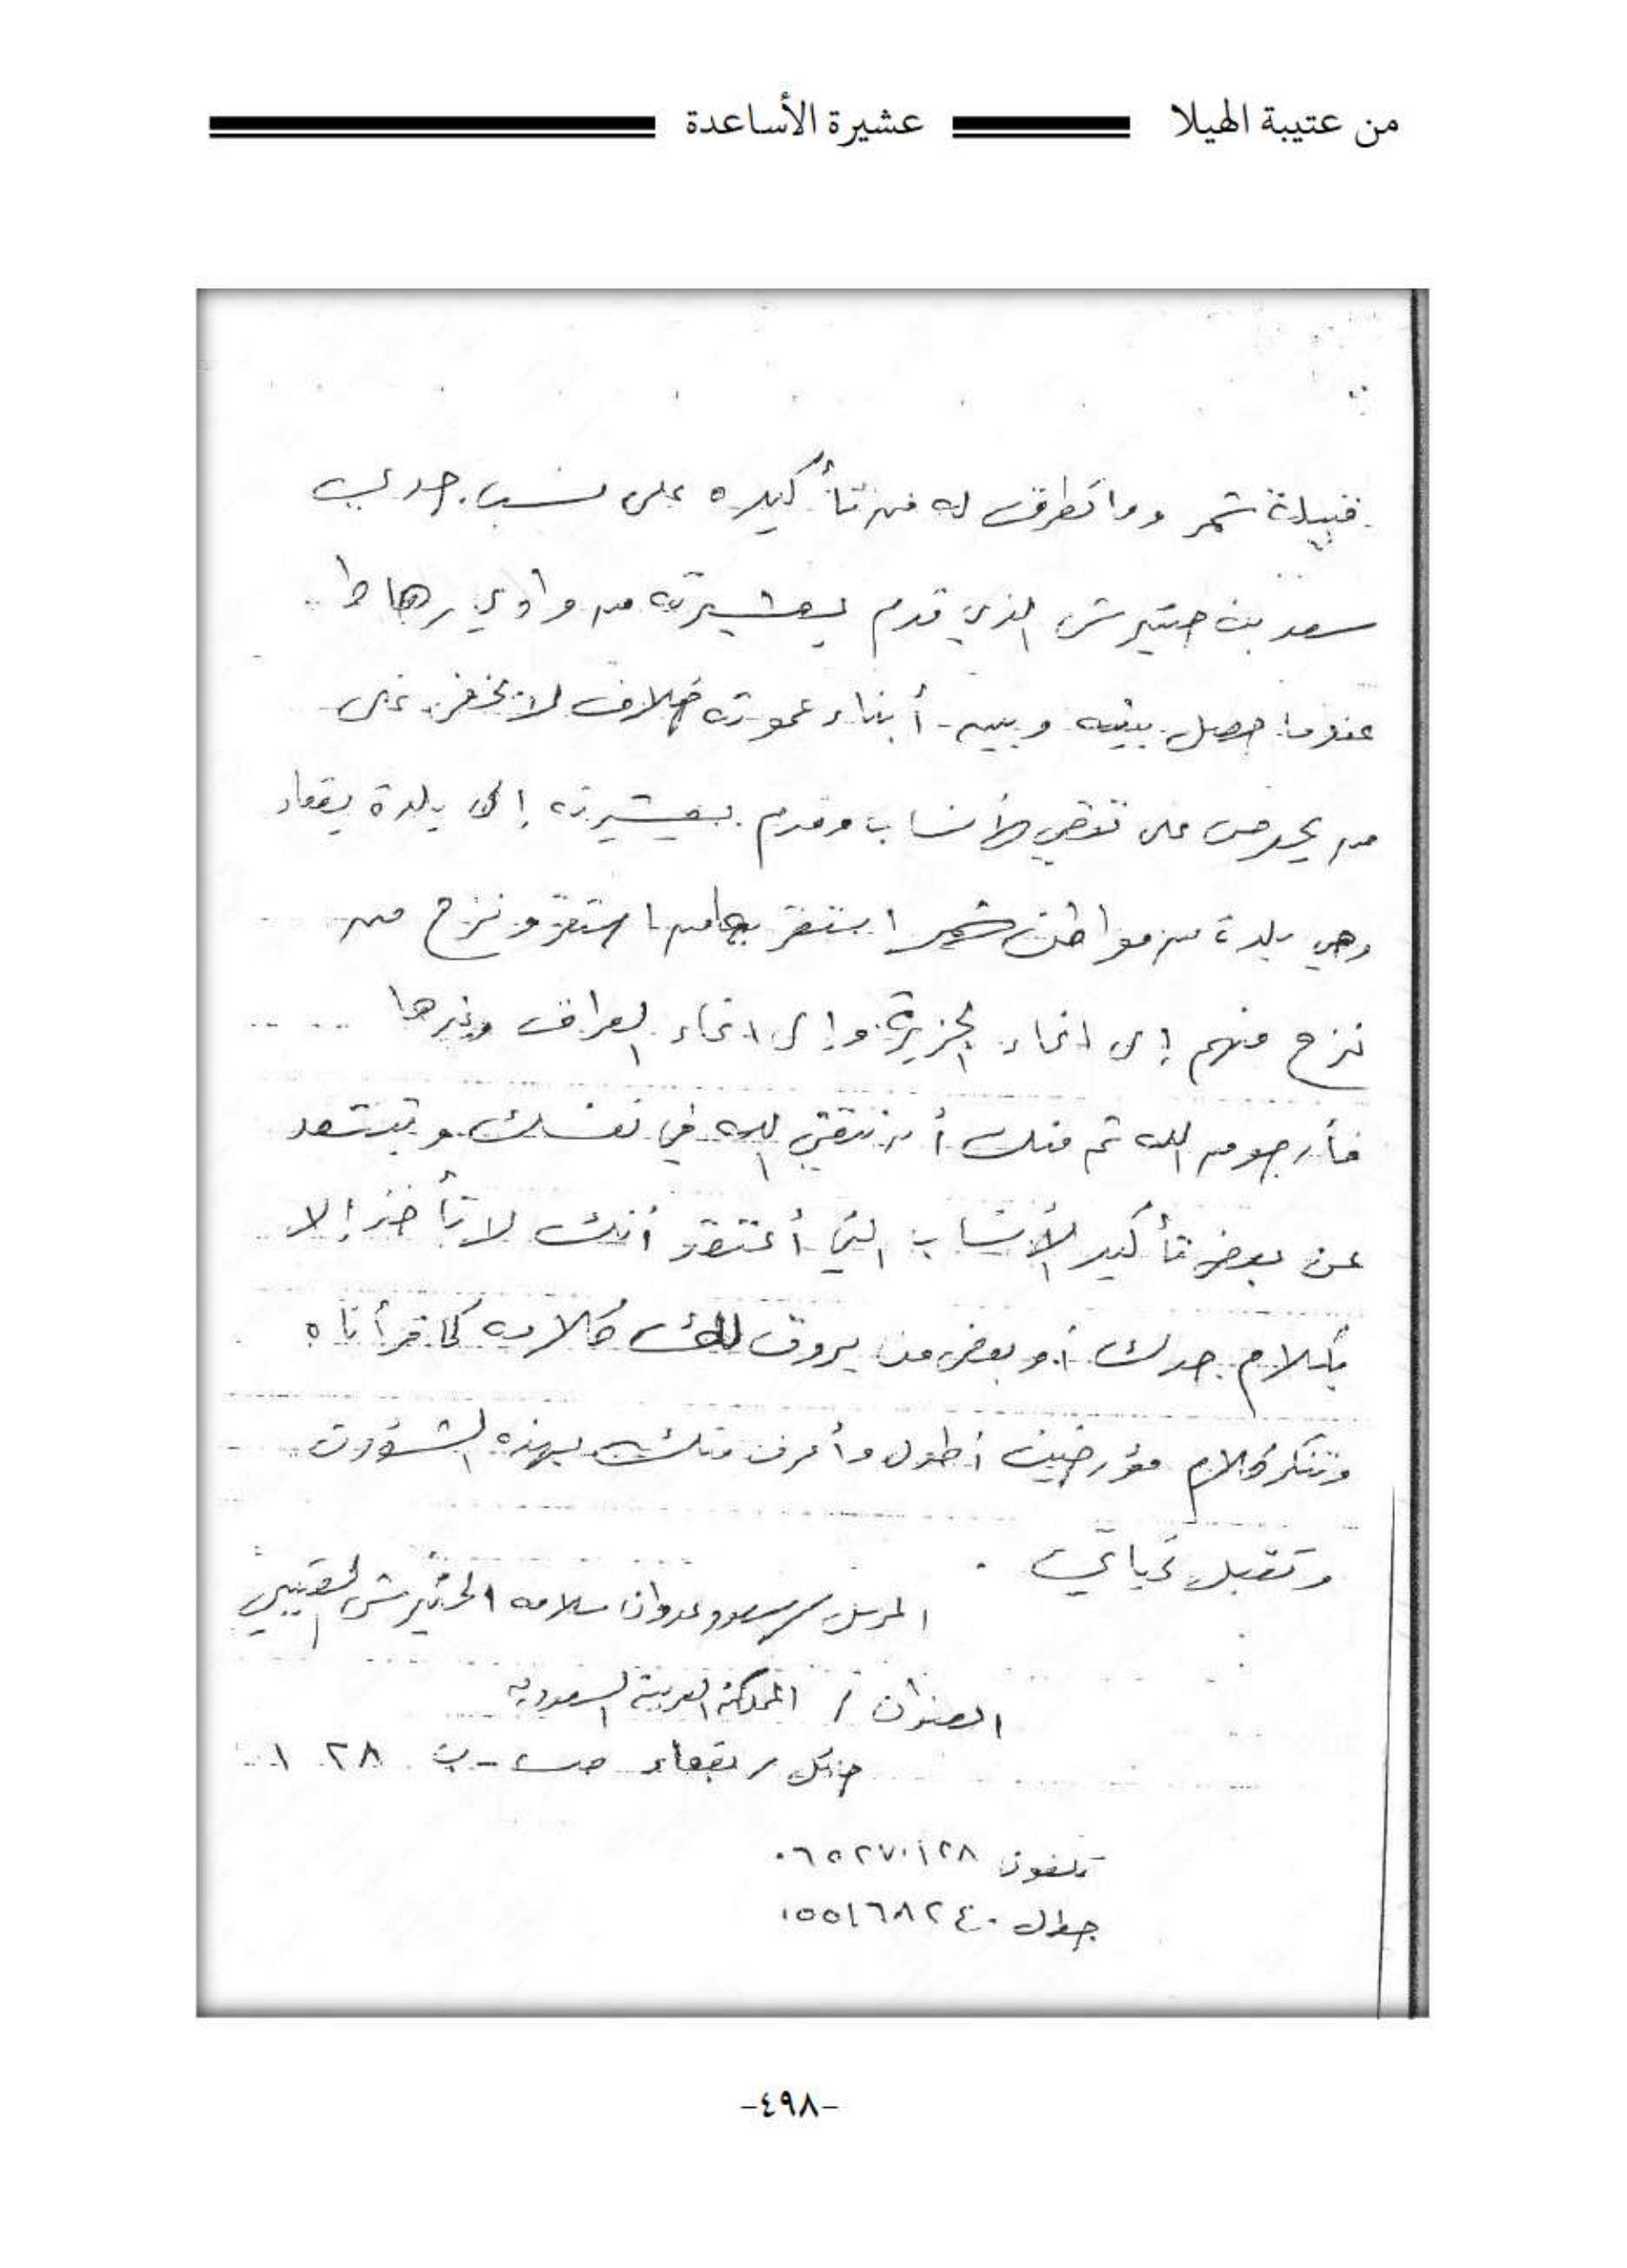 من عتيبة الهيلا عشيرة الأساعدة
قبيلة شمر وما تطرقت له من تأكيده على نسب جدي
سعد بن حتيرش الذي قدم بعشيرته من وادي رهاط
عندما حصل بينه وبين أبناء عمومته خلاف لا يخفى على
من يحرص على تقصي الأنساب وقدم بعشيرته إلى بلدة بقعاء
وهي بلدة من مواطن شمر استقر بها من استقر ونزح من
نزح منهم إلى انحاء الجزيرة وإلى انحاء العراق وغيرها
فأرجو من الله ثم منك أن تتقي الله في نفسك وتبتعد
عن بعض تأكيد الأنساب التي أعتقد أنك لا تأخذ إلا
بكلام جدك أو بعض من يروق لك كلامه كما قرأناه
وتنكر كلام مؤرخين أطول وأعرف منك بهذه الشؤون
وتقبل تحياتي .
المرسل / سعود عدوان سلامه الحتيرش العتيبي
العنوان / المملكة العربية السعودية
حائل / بقعاء ص - ب ٢٨ ١
تلفون ٠٦٥٢٧٠١٢٨
جوال ٠٥٥١٦٨٢٤٠
-٤٩٨-